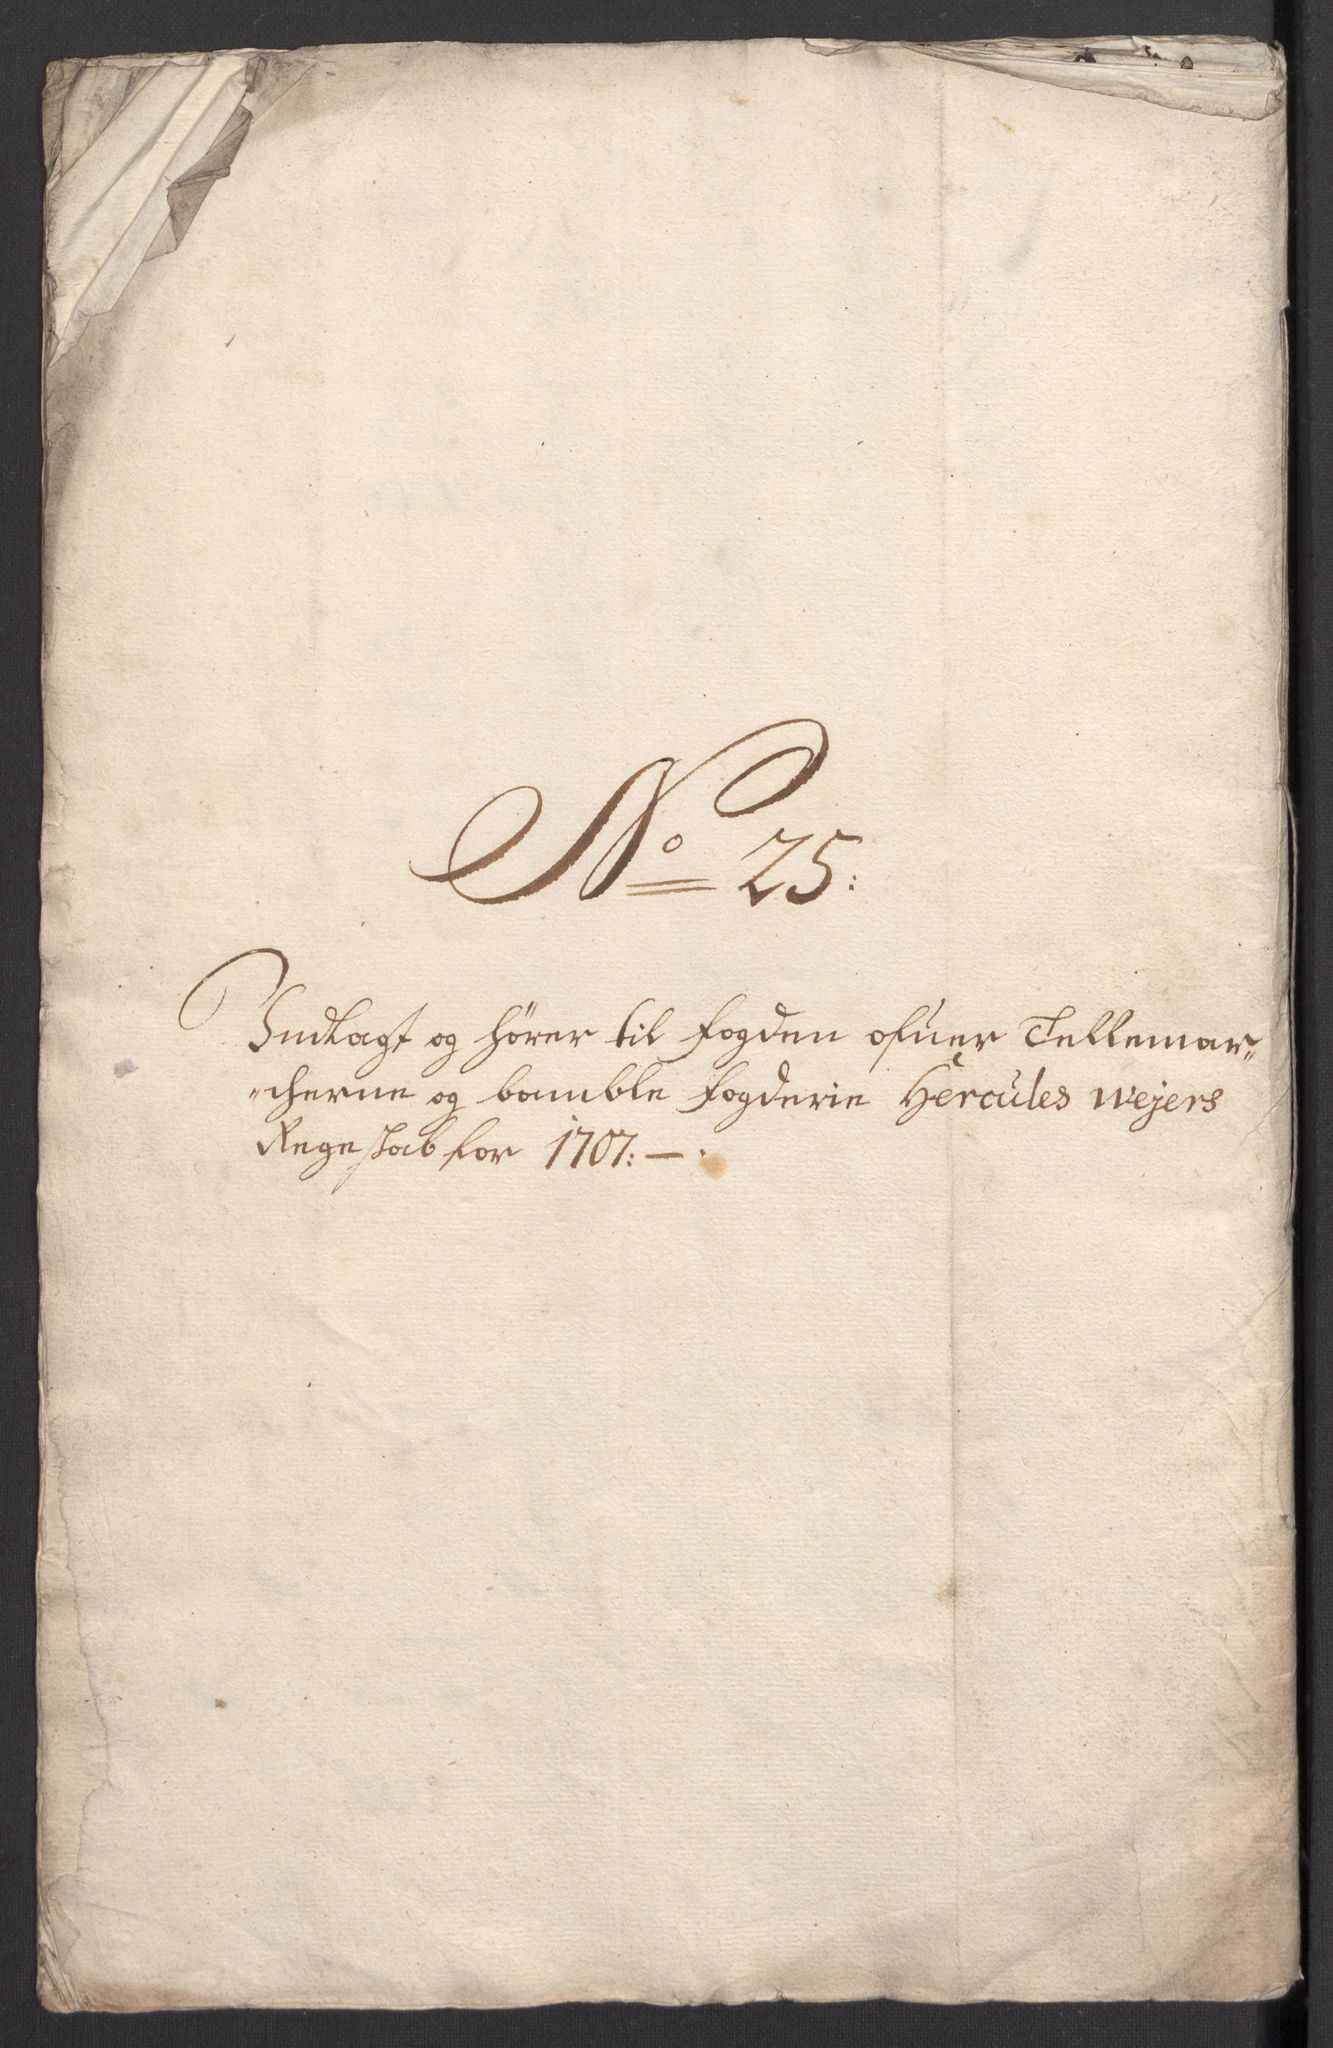 No 25:
Indlagt og hører til fogden ofuer Tellemar„
„cherne og bamble fogderie Hercules Wejers
Regeskab for 1707: — .